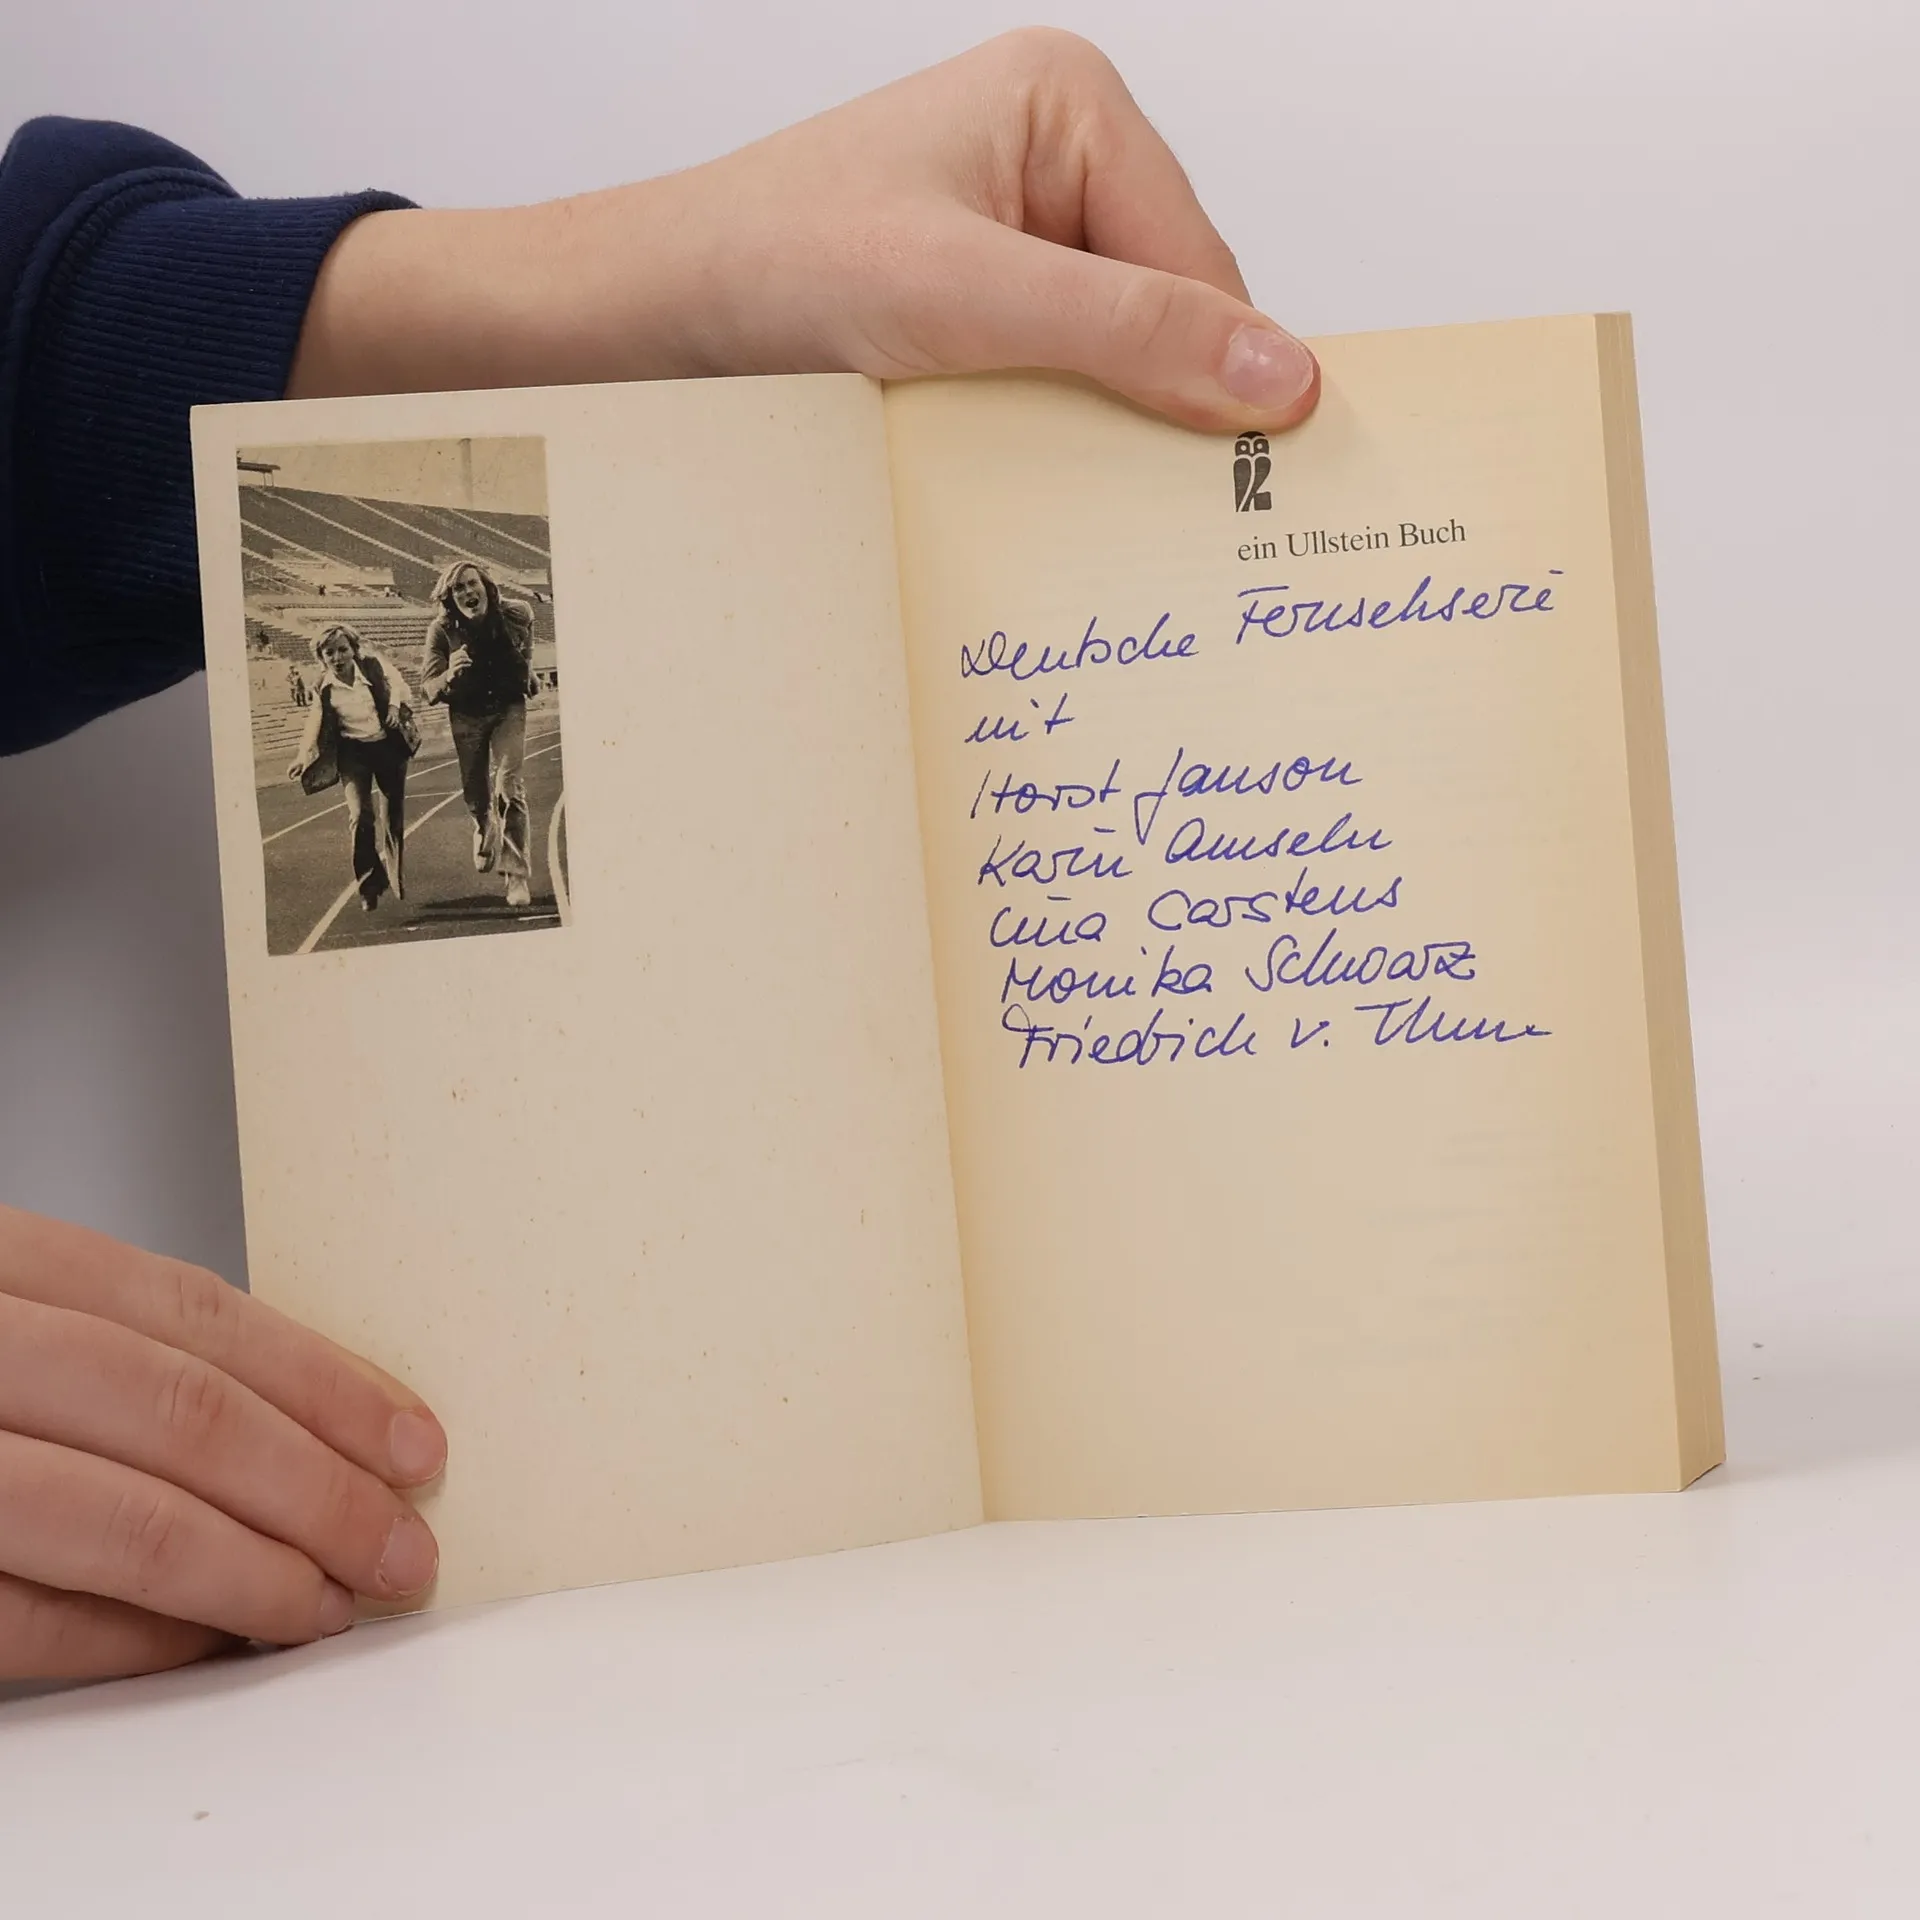 ein Ullstein Buch
Deutsche Fernsehserie
mit
Horst Janson
Karin Anselm
Lina Carstens
Monika Schwarz
Friedrich v. Thun